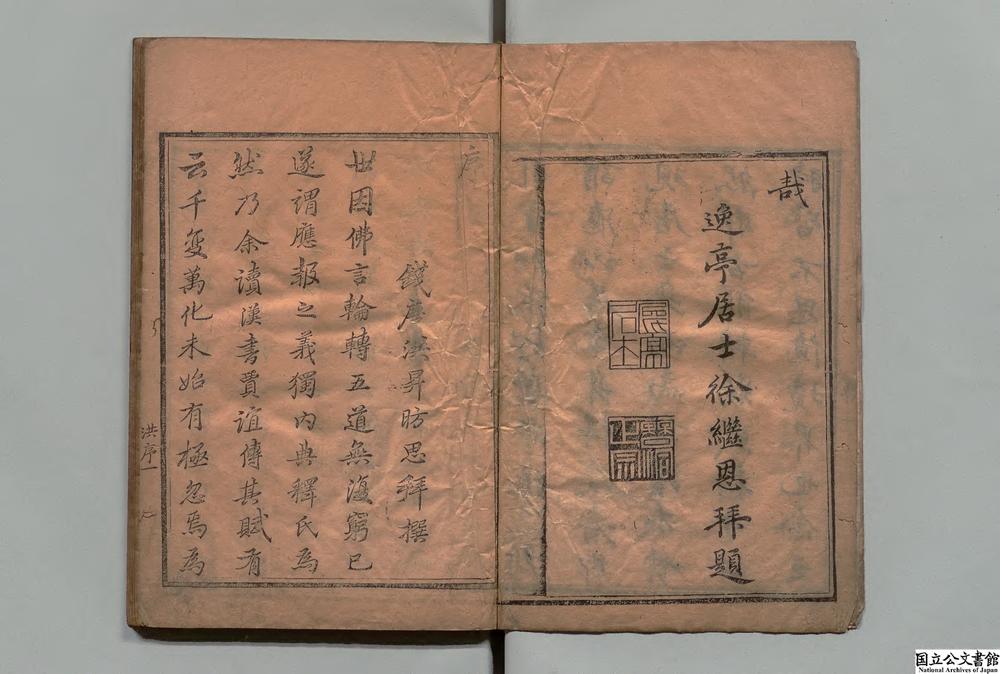 哉
逸亭居士徐繼恩拜題
序
錢唐洪昇昉思拜撰
世因佛言輪轉五道無復窮已
遂謂應報之義獨內典釋氏爲
然乃余讀漢書賈誼傳其賦有
云千變萬化未始有極忽焉爲
洪序一
国立公文書館
National Archives of Japan